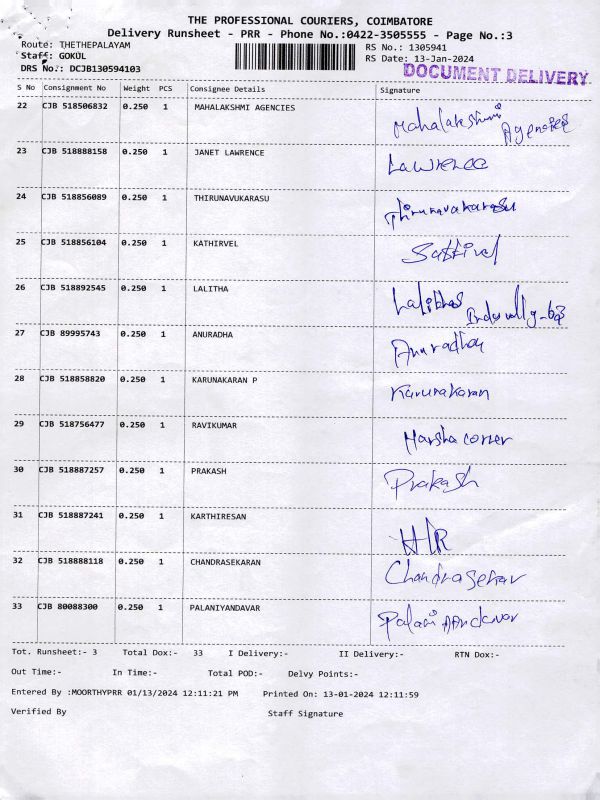 THE PROFESSIONAL COURIERS, COIMBATORE
Delivery Runsheet - PRR - Phone No.:0422-3505555 - Page No.:3
Route: THETHEPALAYAM RS No.: 1305941
Staff: GOKUL RS Date: 13-Jan-2024
DRS No.: DCJB130594103 DOCUMENT DELIVERY
S No Consignment No Weight PCS Consignee Details Signature
22 CJB 518506832 0.250 1 MAHALAKSHMI AGENCIES Mahalakshmi Agencies
23 CJB 518888158 0.250 1 JANET LAWRENCE Lawrence
24 CJB 518856089 0.250 1 THIRUNAVUKARASU Thirunavukarasu
25 CJB 518856104 0.250 1 KATHIRVEL
26 CJB 518892545 0.250 1 LALITHA
27 CJB 89995743 0.250 1 ANURADHA Anuradha
28 CJB 518858820 0.250 1 KARUNAKARAN P Karunakaran
29 CJB 518756477 0.250 1 RAVIKUMAR Harsha corner
30 CJB 518887257 0.250 1 PRAKASH Prakash
31 CJB 518887241 0.250 1 KARTHIRESAN
32 CJB 518888118 0.250 1 CHANDRASEKARAN Chandrasekar
33 CJB 80088300 0.250 1 PALANIYANDAVAR Palani Andavar
Tot. Runsheet:- 3 Total Dox:- 33 I Delivery:- II Delivery:- RTN Dox:-
Out Time:- In Time:- Total POD:- Delvy Points:-
Entered By :MOORTHYPRR 01/13/2024 12:11:21 PM Printed On: 13-01-2024 12:11:59
Verified By Staff Signature